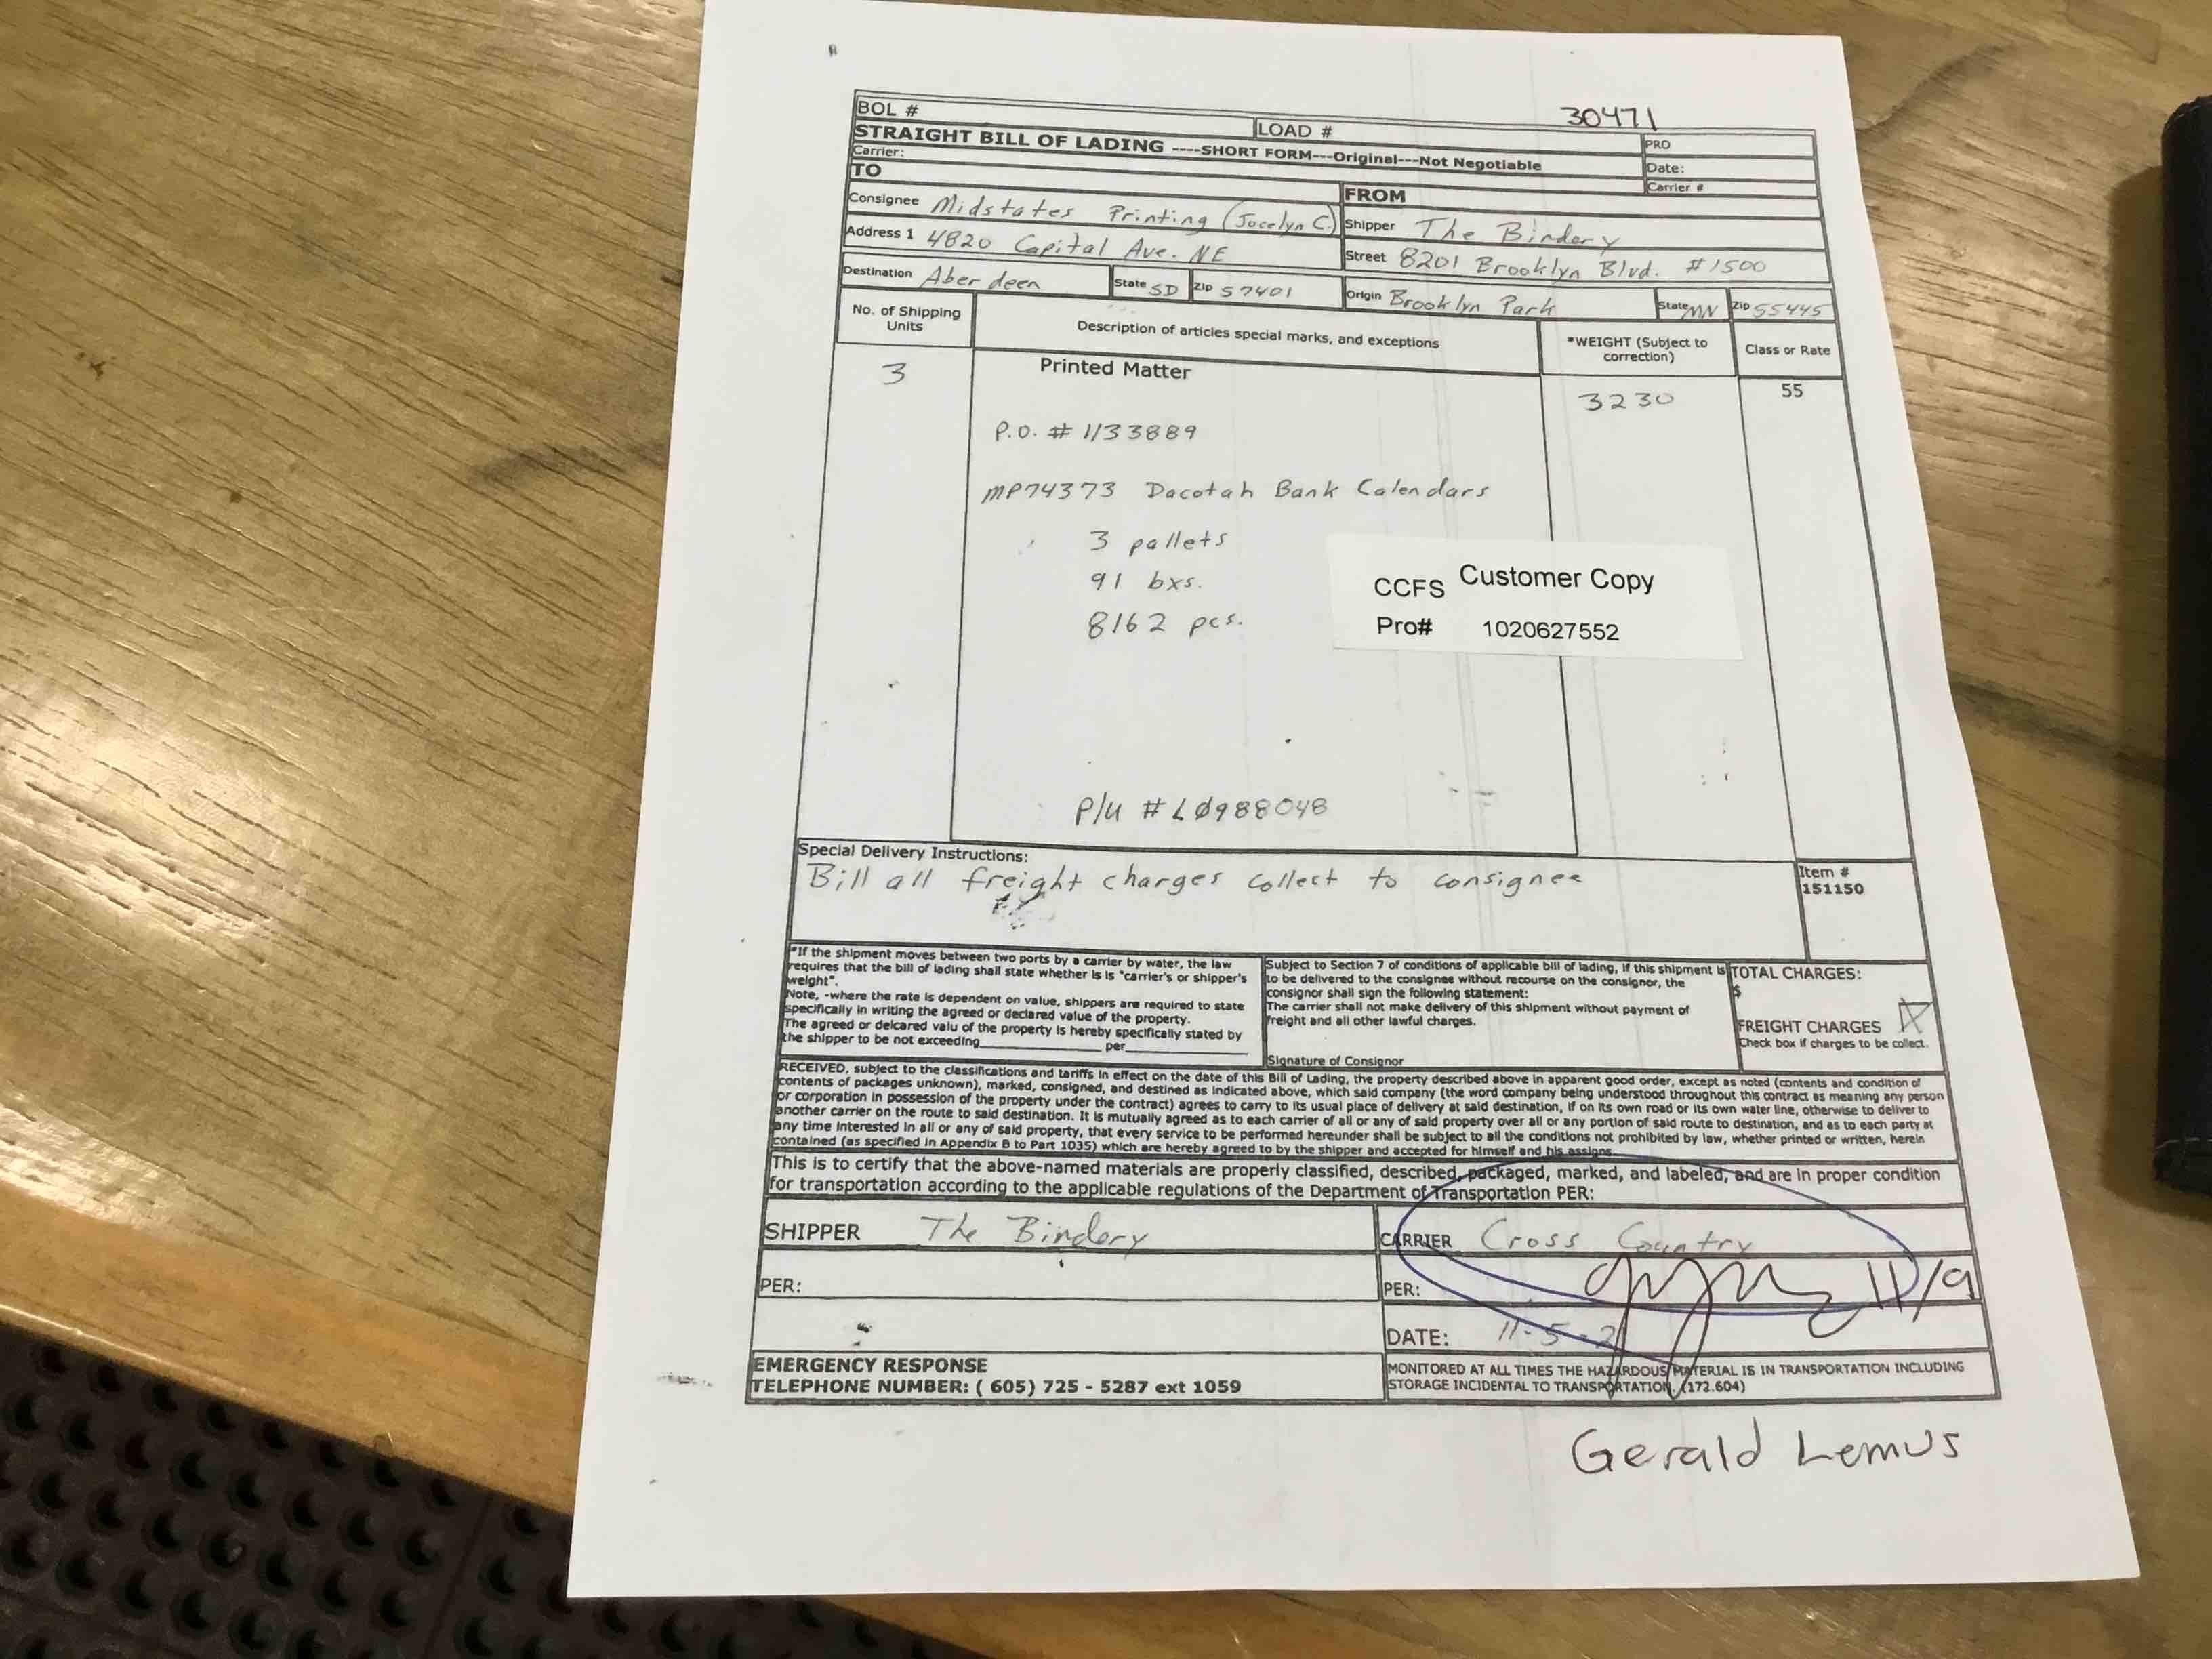 30471
BOL #
LOAD #
STRAIGHT BILL OF LADING ----SHORT FORM---Original---Not Negotiable
PRO
Carrier:
Date:
TO
FROM
Carrier #
Consignee Midstates Printing (Jocelyn C.)
Shipper The Bindery
Address 1 4820 Capital Ave. NE
Street 8201 Brooklyn Blvd. #1500
Destination Aberdeen State SD Zip 57401
Origin Brooklyn Park State MN Zip 55445
No. of Shipping
Units
Description of articles special marks, and exceptions
*WEIGHT (Subject to
correction)
Class or Rate
3
Printed Matter
3230
55
P.O. # 1133889
MP74373 Dacotah Bank Calendars
3 pallets
91 bxs.
8162 pcs.
CCFS Customer Copy
Pro# 1020627552
P/U # LØ988048
Special Delivery Instructions:
Bill all freight charges collect to consignee
Item #
151150
*If the shipment moves between two ports by a carrier by water, the law
requires that the bill of lading shall state whether is is "carrier's or shipper's
weight".
Note, -where the rate is dependent on value, shippers are required to state
specifically in writing the agreed or declared value of the property.
The agreed or delcared valu of the property is hereby specifically stated by
the shipper to be not exceeding____________ per____________
Subject to Section 7 of conditions of applicable bill of lading, if this shipment is
to be delivered to the consignee without recourse on the consignor, the
consignor shall sign the following statement:
The carrier shall not make delivery of this shipment without payment of
freight and all other lawful charges.
Signature of Consignor
TOTAL CHARGES:
$
FREIGHT CHARGES
Check box if charges to be collect.
RECEIVED, subject to the classifications and tariffs in effect on the date of this Bill of Lading, the property described above in apparent good order, except as noted (contents and condition of
contents of packages unknown), marked, consigned, and destined as indicated above, which said company (the word company being understood throughout this contract as meaning any person
or corporation in possession of the property under the contract) agrees to carry to its usual place of delivery at said destination, if on its own road or its own water line, otherwise to deliver to
another carrier on the route to said destination. It is mutually agreed as to each carrier of all or any of said property over all or any portion of said route to destination, and as to each party at
any time interested in all or any of said property, that every service to be performed hereunder shall be subject to all the conditions not prohibited by law, whether printed or written, herein
contained (as specified in Appendix B to Part 1035) which are hereby agreed to by the shipper and accepted for himself and his assigns.
This is to certify that the above-named materials are properly classified, described, packaged, marked, and labeled, and are in proper condition
for transportation according to the applicable regulations of the Department of Transportation PER:
SHIPPER The Bindery
CARRIER Cross Country
PER:
PER: 11/9
DATE: 11-5-21
EMERGENCY RESPONSE
TELEPHONE NUMBER: ( 605) 725 - 5287 ext 1059
MONITORED AT ALL TIMES THE HAZARDOUS MATERIAL IS IN TRANSPORTATION INCLUDING
STORAGE INCIDENTAL TO TRANSPORTATION. (172.604)
Gerald Lemus